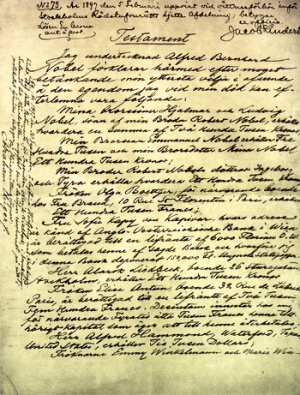 No 73. År 1897 den 5 Februari uppvist vid vittnesförhör inför
Stockholms Rådstufvurätts sjette Afdelning; betygar
Testament
Jag undertecknad Alfred Bernhard
Nobel förklarar härmed efter moget
betänkande min yttersta vilja i afseende
å den egendom jag vid min död kan ef-
terlemna vara följande:
Mina Brorsöner Hjalmar och Ludvig
Nobel, söner af min Broder Robert Nobel, erhålla
hvardera en summa af Två Hundra Tusen Kronor;
Min Brorson Emmanuel Nobel erhåller Tre
Hundra Tusen och min Brorsdotter Mina Nobel
Ett Hundra Tusen Kronor;
Min Broder Robert Nobels döttrar Ingeborg
och Tyra erhålla hvardera Ett Hundra Tusen
Fröken Olga Boettger, för närvarande boende
hos Fru Brand, 10 Rue St Florentin i Paris, erhåller
Ett Hundra Tusen Francs;
Fru Sofie Kapy von Kapivar, hvars adress
är känd af Anglo-Oesterreichische Bank i Wien
är berättigad till en lifränta af 6000 Florins Ö.W.
som betalas henne af sagde Bank och hvarför jag
i denna Bank deponerat 150,000 Fl. i
Herr Alarik Liedbeck, boende 26 Sturegatan,
Stockholm, erhåller Ett Hundra Tusen Kronor;
Fröken Elise Antun, boende 32 Rue de Lubeck,
Paris, är berättigad till en lifränta af Två Tusen
Fem Hundra Francs. Dessutom innestår hos mig
för närvarande Fyratio Åtta Tusen Francs henne till-
höriga kapital som äger att till henne återbetalas;
Herr Alfred Hammond, Waterford, Texas,
United States, erhåller Tio Tusen Dollars;
Fröknarna Emmy Winkelmann och Marie Win-